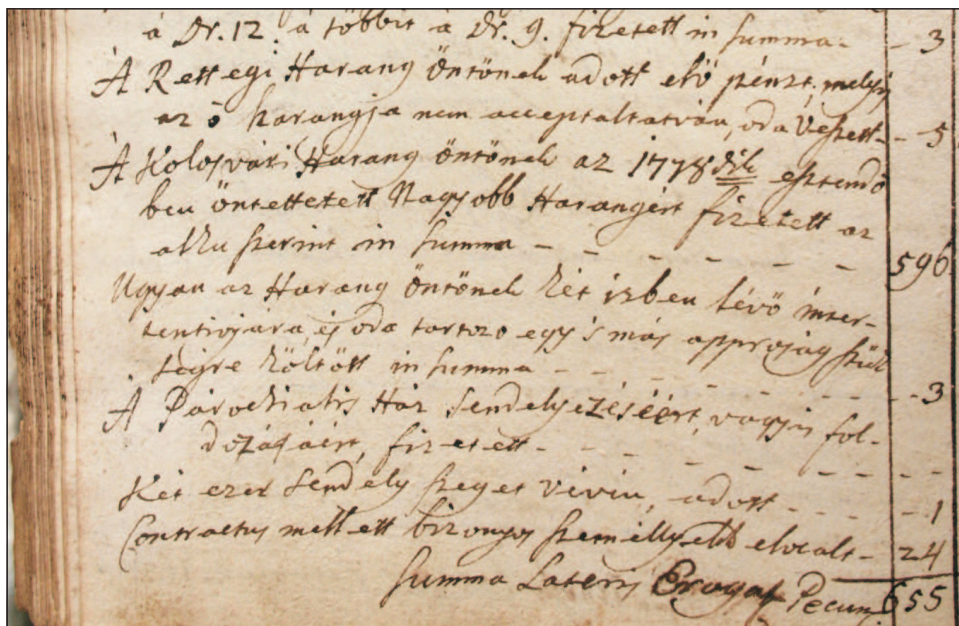 à Dr. 12. a többit à Dr. 9. fizetett in summa - - 3
A Rettegi Harang öntönek adott elö pénzt, mely
az ö harangja nem acceptaltatván, oda veszett - - 5
A Kolosvári Harang öntönek az 1778dik esztendö
ben öntettetett Nagyobb Harangért fizetett az
alku szerint in summa - - - - - - 596
Ugyan az Harang öntönek két izben lévö inter-
tentiojára, és oda tartozo egy 's más appróság szük
ségre költött in summa - - - - - - 3
A Parochialis Ház sendelyezéséért, vagyis fol-
dozásáért, fizetett - - - - - - -
Két ezer sendely szeget vévén, adott - - - - 1
Contractus mellett bizonyos személlyekk elocalt - 24
Summa Lateris Erogat Pecun 655